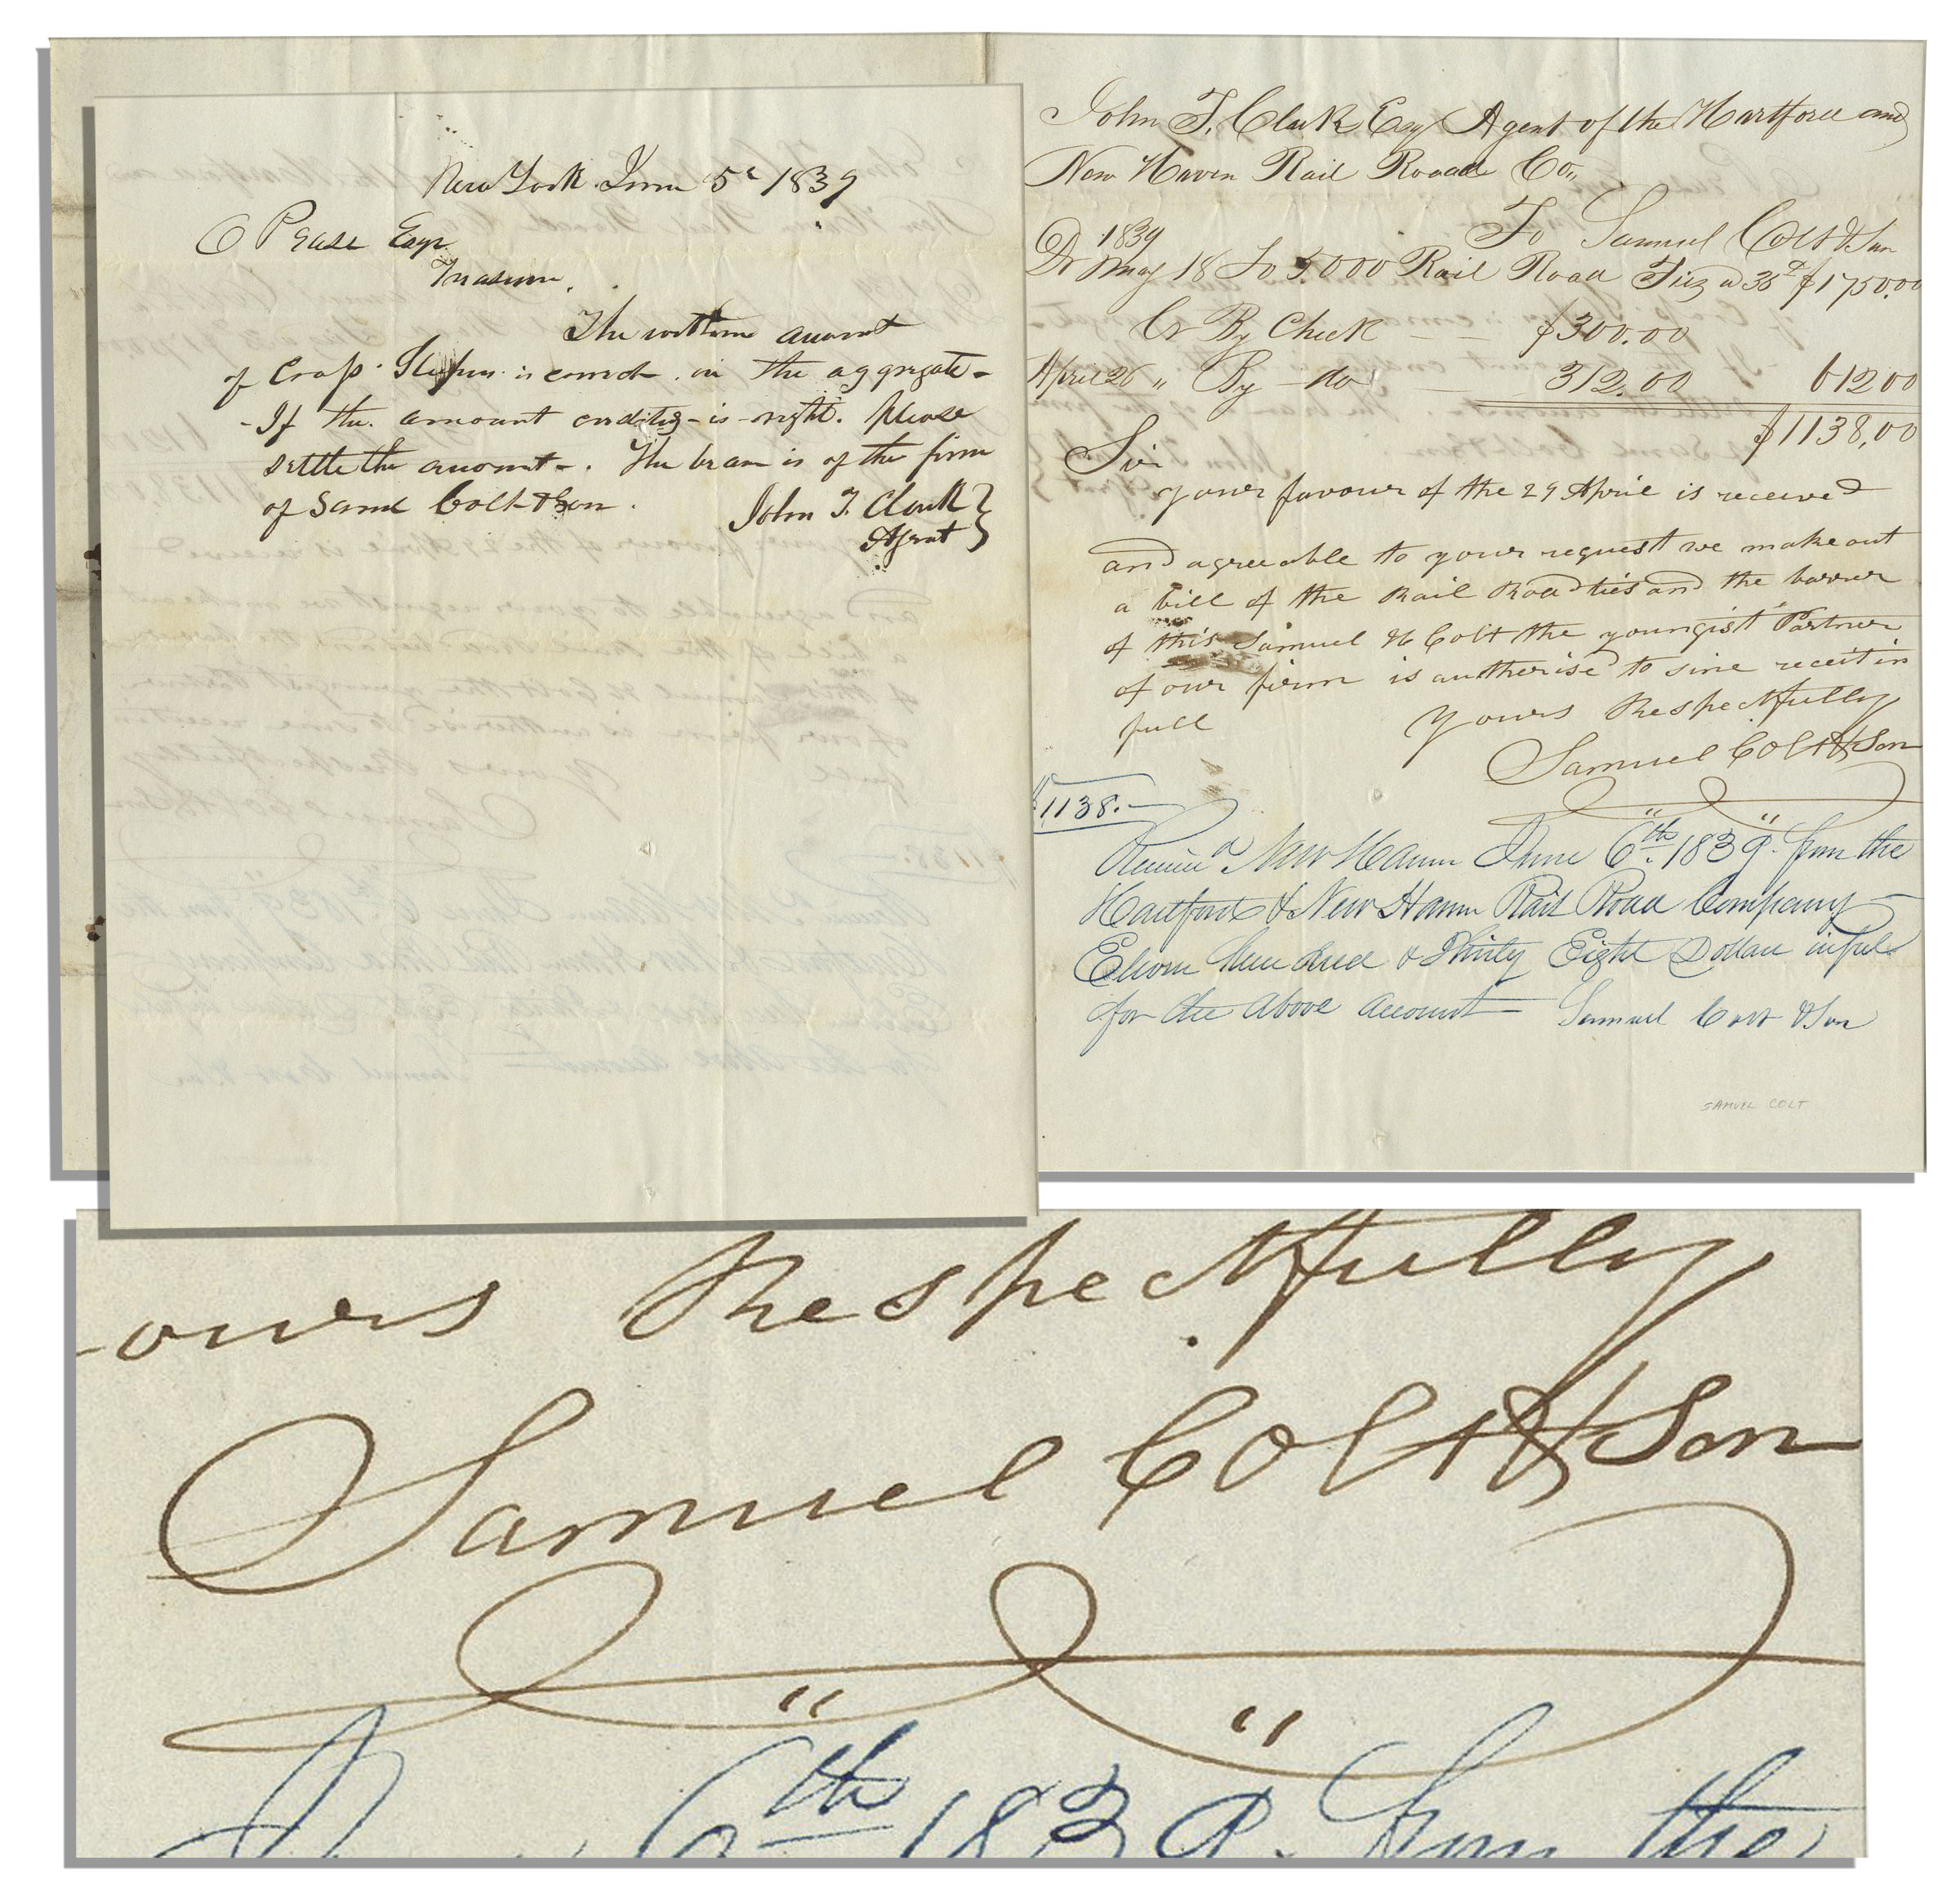 New York June 5th 1839
O Pease Esqr
Treasurer.
The within amount
of Cross Sleepers is correct in the aggregate -
- If the amount credited - is right. please
settle the amount -. The bearer is of the firm
of Saml Colt & Son.
John T. Clark }
Agent }
John T. Clark Esq Agent of the Hartford and
New Haven Rail Roaad Co,,
To Samuel Colt & Son
1839
Dr May 18 To 5.000 Rail Road Tiez a 35 $1750.00
Cr By Check - - $300.00
April 26 " By - do - 312.00 612 00
$1138,00
Sir
your favour of the 29 April is received
and agreeable to your request we make out
a bill of the Rail Road ties and the barrer
of this Samuel H Colt the youngist Partner
of our firm is autherise to sine receit in
full
Yours Respectfully
Samuel Colt & Son
$1138.-
Receivd New Haven June 6th. 1839. from the
Hartford & New Haven Rail Road Company
Eleven hundred & Thirty Eight Dollars in full
for the above account - Samuel Colt & Son
SAMUEL COLT
ours Respectfully
Samuel Colt & Son
" "
6th 1839. from the